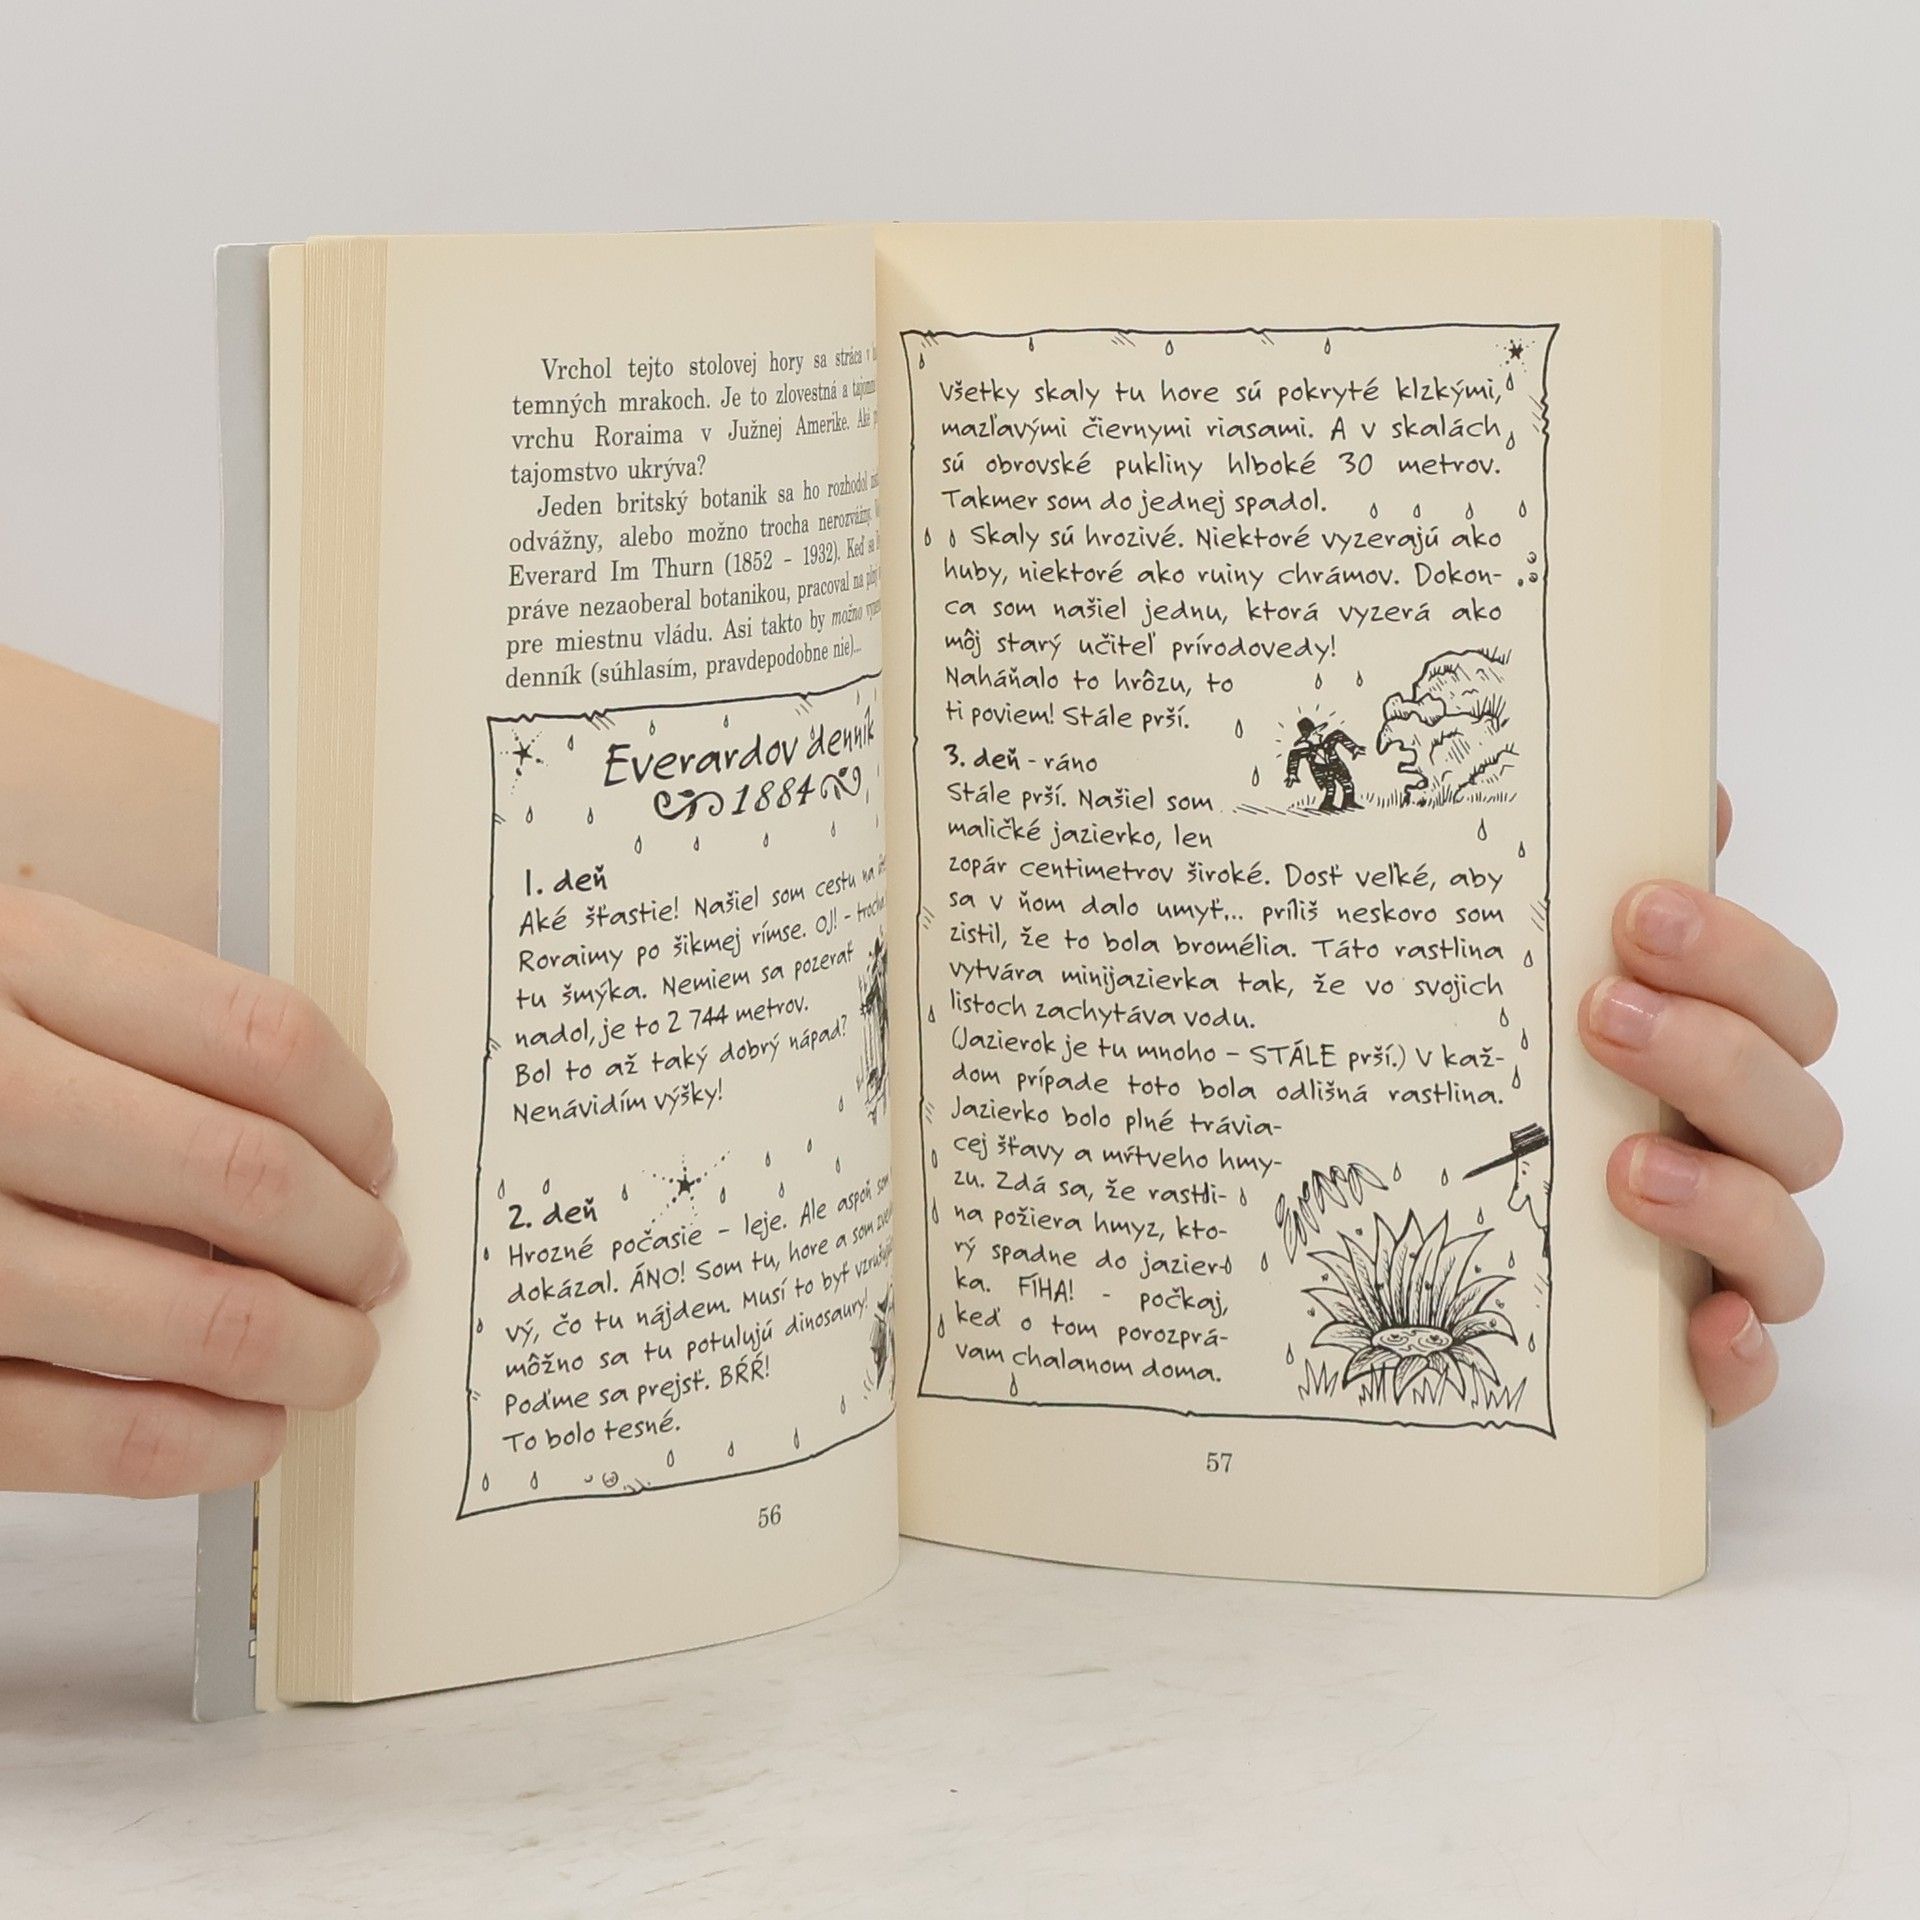 Vrchol tejto stolovej hory sa stráca v
temných mrakoch. Je to zlovestná a
vrchu Roraima v Južnej Amerike. Aké
tajomstvo ukrýva?
Jeden britský botanik sa ho rozhodol
odvážny, alebo možno trocha nerozvážny.
Everard Im Thurn (1852 - 1932). Keď sa
práve nezaoberal botanikou, pracoval na
pre miestnu vládu. Asi takto by možno
denník (súhlasím, pravdepodobne nie)...
Everardov denník
1884
1. deň
Aké šťastie! Našiel som cestu na
Roraimy po šikmej rímse. OJ! - trocha
tu šmýka. Nemiem sa pozerať
nadol, je to 2 744 metrov.
Bol to až taký dobrý nápad?
Nenávidím výšky!
2. deň
Hrozné počasie - leje. Ale aspoň som
dokázal. ÁNO! Som tu, hore a som
vý, čo tu nájdem. Musí to byť
môžno sa tu potulujú dinosaury!
Poďme sa prejsť. BŔŔ!
To bolo tesné.
56
Všetky skaly tu hore sú pokryté klzkými,
mazľavými čiernymi riasami. A v skalách
sú obrovské pukliny hlboké 30 metrov.
Takmer som do jednej spadol.
Skaly sú hrozivé. Niektoré vyzerajú ako
huby, niektoré ako ruiny chrámov. Dokon-
ca som našiel jednu, ktorá vyzerá ako
môj starý učiteľ prírodovedy!
Naháňalo to hrôzu, to
ti poviem! Stále prší.
3. deň - ráno
Stále prší. Našiel som
maličké jazierko, len
zopár centimetrov široké. Dosť veľké, aby
sa v ňom dalo umyť... príliš neskoro som
zistil, že to bola bromélia. Táto rastlina
vytvára minijazierka tak, že vo svojich
listoch zachytáva vodu.
(Jazierok je tu mnoho - STÁLE prší.) V kaž-
dom prípade toto bola odlišná rastlina.
Jazierko bolo plné trávia-
cej šťavy a mŕtveho hmy-
zu. Zdá sa, že rastli-
na požiera hmyz, kto-
rý spadne do jazier-
ka. FÍHA! - počkaj,
keď o tom porozprá-
vam chalanom doma.
57